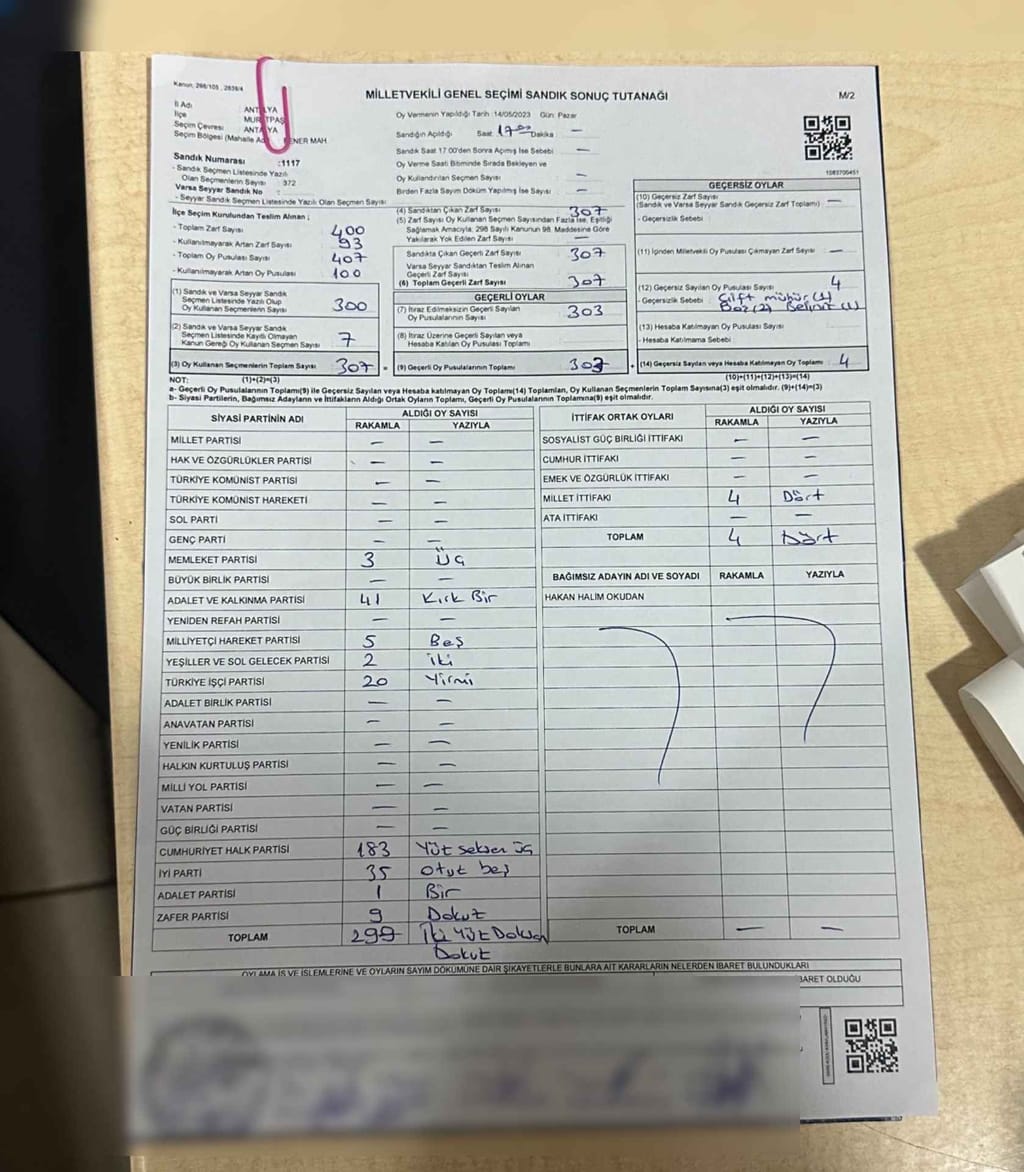 Kanun: 298/105 , 2839/4
MİLLETVEKİLİ GENEL SEÇİMİ SANDIK SONUÇ TUTANAĞI
M/2
İl Adı ANTALYA
İlçe MURATPAŞ
Seçim Çevresi ANTALYA
Seçim Bölgesi (Mahalle Ad ENER MAH
Sandık Numarası :1117
- Sandık Seçmen Listesinde Yazılı
Olan Seçmenlerin Sayısı : 372
Varsa Seyyar Sandık No :
- Seyyar Sandık Seçmen Listesinde Yazılı Olan Seçmen Sayısı
Oy Vermenin Yapıldığı Tarih 14/05/2023 Gün: Pazar
Sandığın Açıldığı Saat 17 00 Dakika —
Sandık Saat 17.00'den Sonra Açılmış İse Sebebi —
Oy Verme Saati Bitiminde Sırada Bekleyen ve
Oy Kullandırılan Seçmen Sayısı —
Birden Fazla Sayım Döküm Yapılmış İse Sayısı —
1583700451
İlçe Seçim Kurulundan Teslim Alınan ;
- Toplam Zarf Sayısı 400
- Kullanılmayarak Artan Zarf Sayısı 93
- Toplam Oy Pusulası Sayısı 407
- Kullanılmayarak Artan Oy Pusulası 100
(1) Sandık ve Varsa Seyyar Sandık
Seçmen Listesinde Yazılı Olup
Oy Kullanan Seçmenlerin Sayısı 300
(2) Sandık ve Varsa Seyyar Sandık
Seçmen Listesinde Kayıtlı Olmayan
Kanun Gereği Oy Kullanan Seçmen Sayısı 7
(3) Oy Kullanan Seçmenlerin Toplam Sayısı 307 =
(4) Sandıktan Çıkan Zarf Sayısı 307
(5) Zarf Sayısı Oy Kullanan Seçmen Sayısından Fazla İse, Eşitliği
Sağlamak Amacıyla; 298 Sayılı Kanunun 98. Maddesine Göre
Yakılarak Yok Edilen Zarf Sayısı —
Sandıkta Çıkan Geçerli Zarf Sayısı 307
Varsa Seyyar Sandıktan Teslim Alınan
Geçerli Zarf Sayısı —
(6) Toplam Geçerli Zarf Sayısı 307
GEÇERLİ OYLAR
(7) İtiraz Edilmeksizin Geçerli Sayılan
Oy Pusulalarının Sayısı 303
(8) İtiraz Üzerine Geçerli Sayılan veya
Hesaba Katılan Oy Pusulası Toplamı
(9) Geçerli Oy Pusulalarının Toplamı 303 +
GEÇERSİZ OYLAR
(10) Geçersiz Zarf Sayısı
(Sandık ve Varsa Seyyar Sandık Geçersiz Zarf Toplamı) —
- Geçersizlik Sebebi
(11) İçinden Milletvekili Oy Pusulası Çıkmayan Zarf Sayısı —
(12) Geçersiz Sayılan Oy Pusulası Sayısı 4
- Geçersizlik Sebebi Çift mühür (1)
Boz (2) Belirsiz (1)
(13) Hesaba Katılmayan Oy Pusulası Sayısı
- Hesaba Katılmama Sebebi
(14) Geçersiz Sayılan veya Hesaba Katılmayan Oy Toplamı 4
NOT: (1)+(2)=(3) (10)+(11)+(12)+(13)=(14)
a- Geçerli Oy Pusulalarının Toplamı(9) ile Geçersiz Sayılan veya Hesaba katılmayan Oy Toplamı(14) Toplamları, Oy Kullanan Seçmenlerin Toplam Sayısına(3) eşit olmalıdır. (9)+(14)=(3)
b- Siyasi Partilerin, Bağımsız Adayların ve İttifakların Aldığı Ortak Oyların Toplamı, Geçerli Oy Pusulalarının Toplamına(9) eşit olmalıdır.
SİYASİ PARTİNİN ADI ALDIĞI OY SAYISI
RAKAMLA YAZIYLA
MİLLET PARTİSİ — —
HAK VE ÖZGÜRLÜKLER PARTİSİ — —
TÜRKİYE KOMÜNİST PARTİSİ — —
TÜRKİYE KOMÜNİST HAREKETİ — —
SOL PARTİ — —
GENÇ PARTİ — —
MEMLEKET PARTİSİ 3 Üç
BÜYÜK BİRLİK PARTİSİ — —
ADALET VE KALKINMA PARTİSİ 41 Kırk Bir
YENİDEN REFAH PARTİSİ — —
MİLLİYETÇİ HAREKET PARTİSİ 5 Beş
YEŞİLLER VE SOL GELECEK PARTİSİ 2 iki
TÜRKİYE İŞÇİ PARTİSİ 20 Yirmi
ADALET BİRLİK PARTİSİ — —
ANAVATAN PARTİSİ — —
YENİLİK PARTİSİ — —
HALKIN KURTULUŞ PARTİSİ — —
MİLLİ YOL PARTİSİ — —
VATAN PARTİSİ — —
GÜÇ BİRLİĞİ PARTİSİ — —
CUMHURİYET HALK PARTİSİ 183 Yüz seksen üç
İYİ PARTİ 35 Otuz beş
ADALET PARTİSİ 1 Bir
ZAFER PARTİSİ 9 Dokuz
TOPLAM 299 İki Yüz Doksan
Dokuz
İTTİFAK ORTAK OYLARI ALDIĞI OY SAYISI
RAKAMLA YAZIYLA
SOSYALİST GÜÇ BİRLİĞİ İTTİFAKI — —
CUMHUR İTTİFAKI — —
EMEK VE ÖZGÜRLÜK İTTİFAKI — —
MİLLET İTTİFAKI 4 Dört
ATA İTTİFAKI — —
TOPLAM 4 Dört
BAĞIMSIZ ADAYIN ADI VE SOYADI RAKAMLA YAZIYLA
HAKAN HALİM OKUDAN
TOPLAM — —
OYLAMA İŞ VE İŞLEMLERİNE VE OYLARIN SAYIM DÖKÜMÜNE DAİR ŞİKAYETLERLE BUNLARA AİT KARARLARIN NELERDEN İBARET BULUNDUKLARI
BARET OLDUĞU